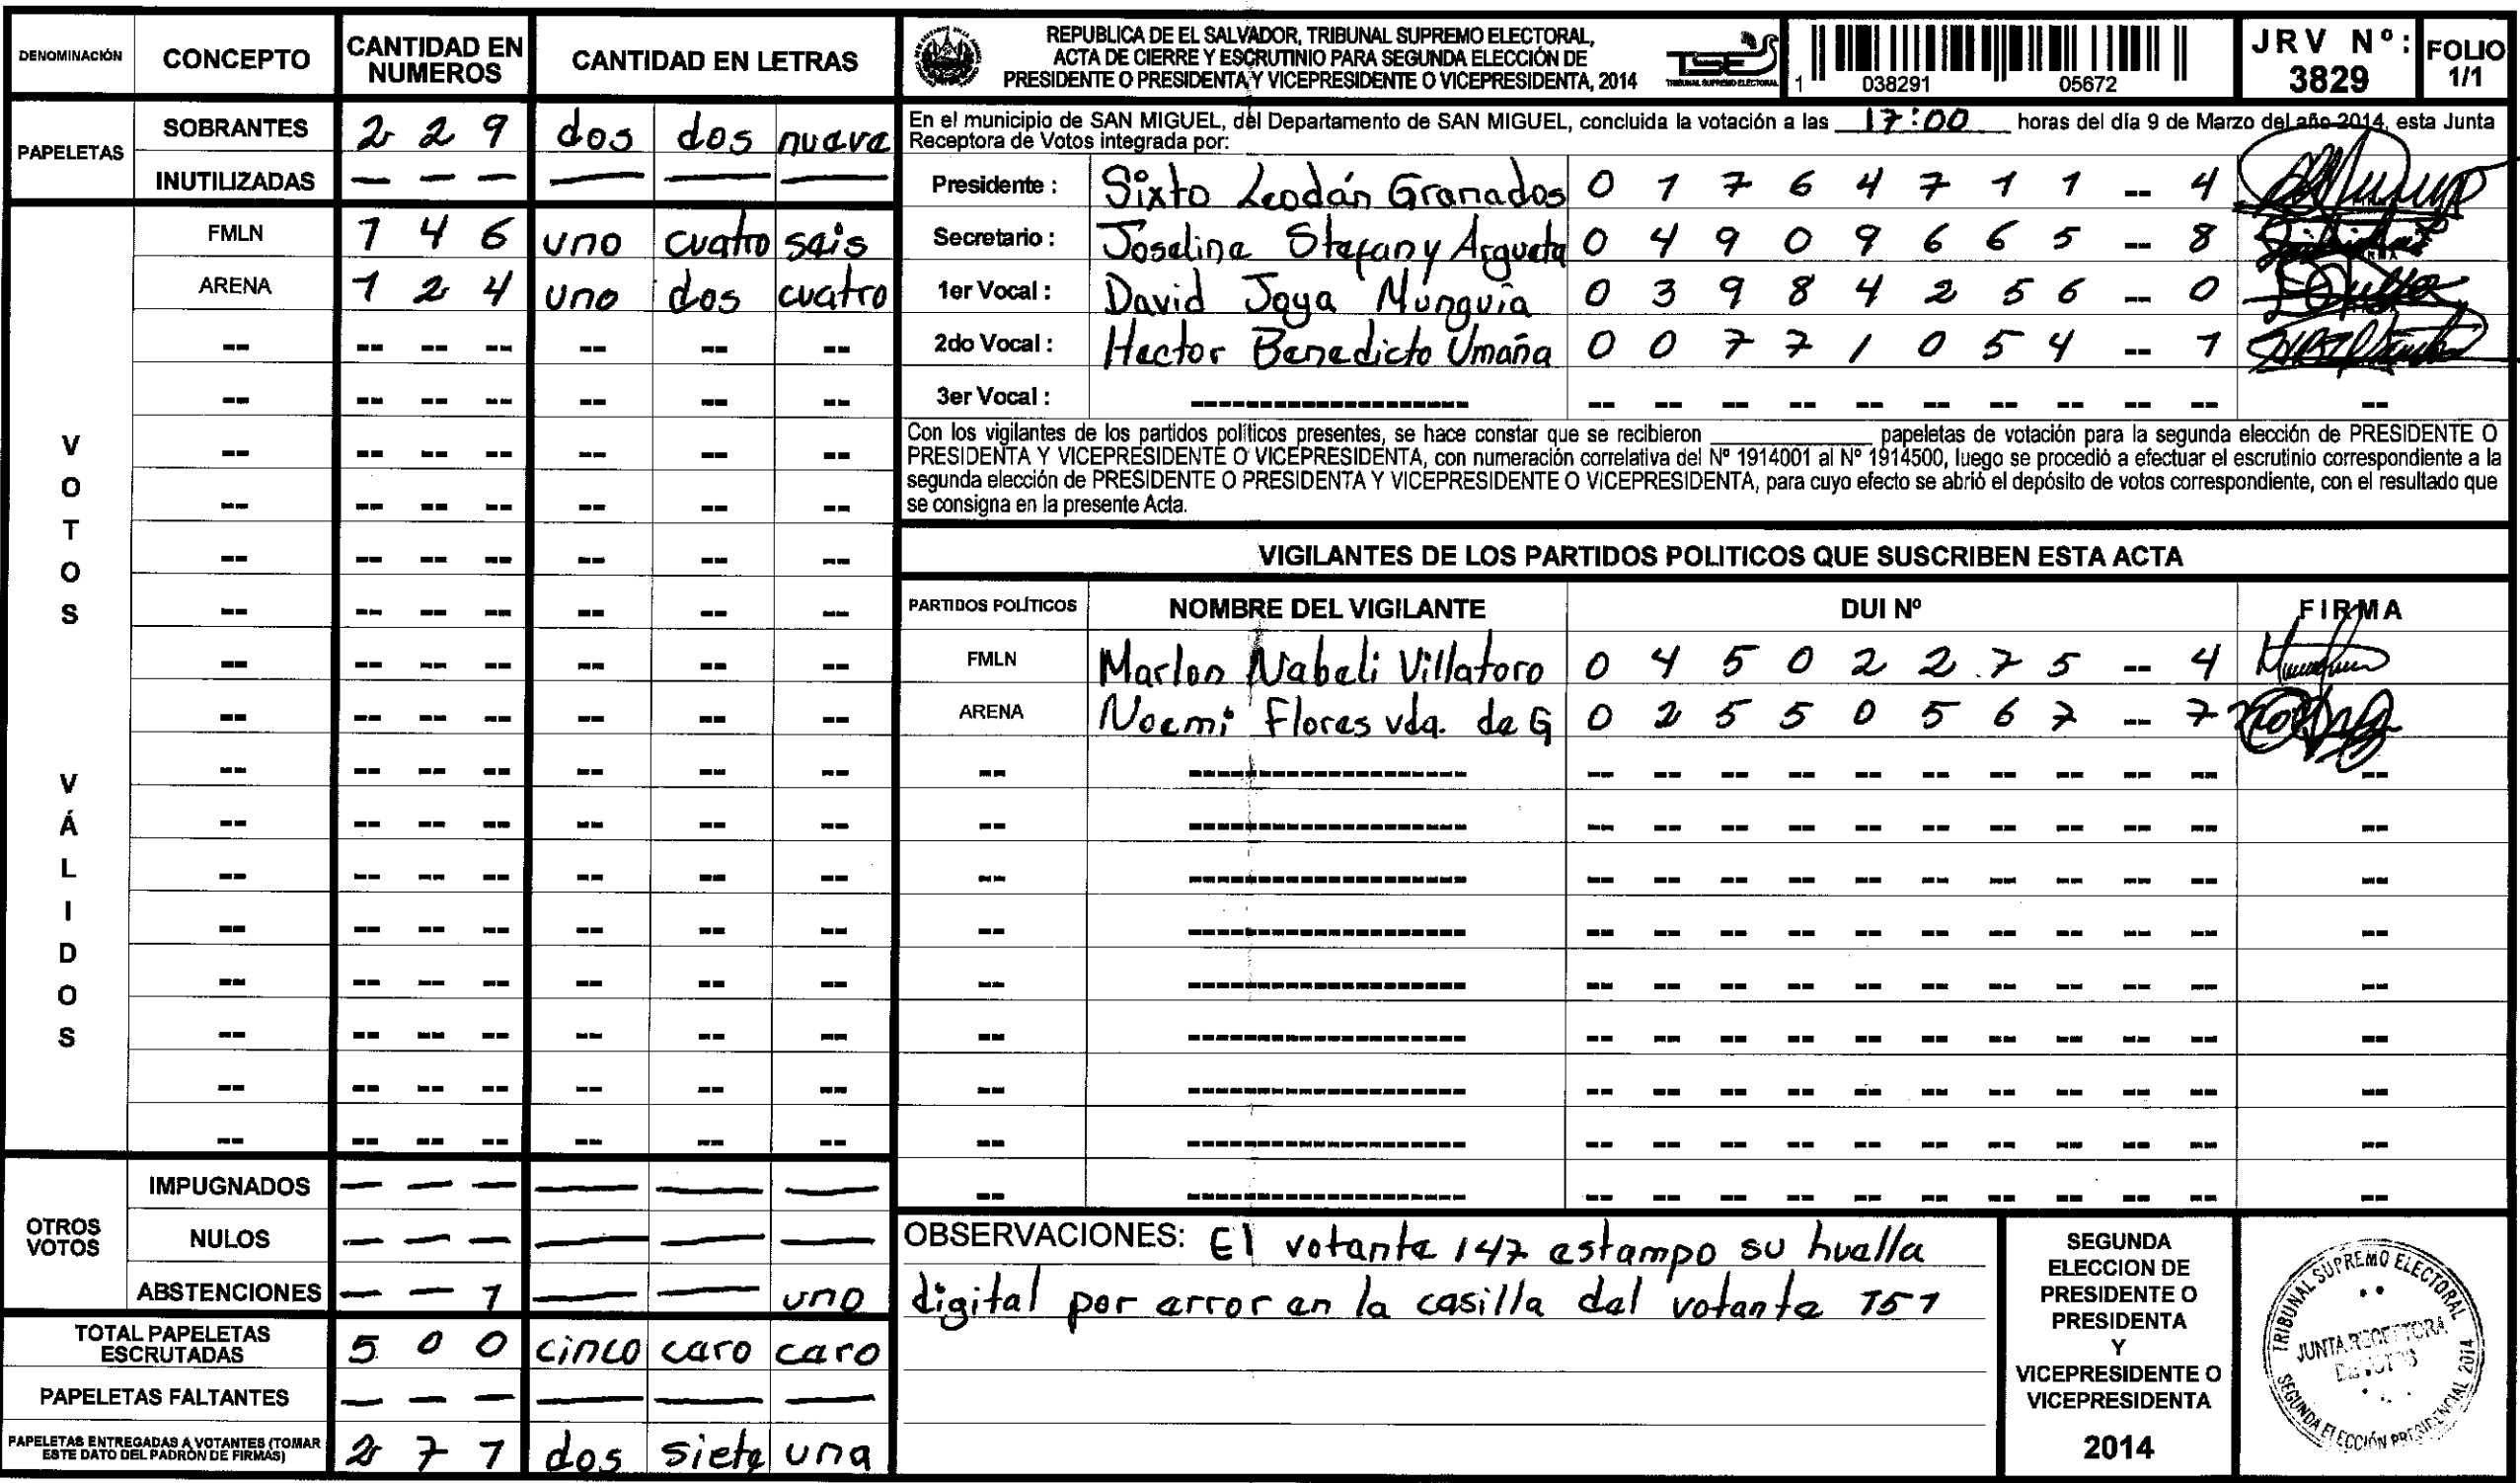 DENOMINACIÓN CONCEPTO CANTIDAD EN NUMEROS CANTIDAD EN LETRAS
PAPELETAS
SOBRANTES 2 2 9 dos dos nueve
INUTILIZADAS — — — — — —
VOTOS VÁLIDOS
FMLN 1 4 6 uno cuatro seis
ARENA 1 2 4 uno dos cuatro
OTROS VOTOS
IMPUGNADOS — — — — — —
NULOS — — — — — —
ABSTENCIONES — — 1 — — uno
TOTAL PAPELETAS ESCRUTADAS 5 0 0 cinco cero cero
PAPELETAS FALTANTES — — — — — —
PAPELETAS ENTREGADAS A VOTANTES (TOMAR ESTE DATO DEL PADRÓN DE FIRMAS) 2 7 1 dos siete una
REPUBLICA DE EL SALVADOR, TRIBUNAL SUPREMO ELECTORAL,
ACTA DE CIERRE Y ESCRUTINIO PARA SEGUNDA ELECCIÓN DE
PRESIDENTE O PRESIDENTA Y VICEPRESIDENTE O VICEPRESIDENTA, 2014
TSE
TRIBUNAL SUPREMO ELECTORAL
1 038291 05672
JRV Nº: 3829
FOLIO 1/1
En el municipio de SAN MIGUEL, del Departamento de SAN MIGUEL, concluida la votación a las 17:00 horas del día 9 de Marzo del año 2014, esta Junta
Receptora de Votos integrada por:
Presidente : Sixto Leodán Granados 0 1 7 6 4 7 1 1 -- 4
Secretario : Joseline Stefany Argueta 0 4 9 0 9 6 6 5 -- 8
1er Vocal : David Joya Munguia 0 3 9 8 4 2 5 6 -- 0
2do Vocal : Hector Benedicto Umaña 0 0 7 7 1 0 5 4 -- 1
3er Vocal :
Con los vigilantes de los partidos políticos presentes, se hace constar que se recibieron ____ papeletas de votación para la segunda elección de PRESIDENTE O
PRESIDENTA Y VICEPRESIDENTE O VICEPRESIDENTA, con numeración correlativa del Nº 1914001 al Nº 1914500, luego se procedió a efectuar el escrutinio correspondiente a la
segunda elección de PRESIDENTE O PRESIDENTA Y VICEPRESIDENTE O VICEPRESIDENTA, para cuyo efecto se abrió el depósito de votos correspondiente, con el resultado que
se consigna en la presente Acta.
VIGILANTES DE LOS PARTIDOS POLITICOS QUE SUSCRIBEN ESTA ACTA
PARTIDOS POLÍTICOS NOMBRE DEL VIGILANTE DUI Nº FIRMA
FMLN Marlon Nabeli Villatoro 0 4 5 0 2 2 7 5 -- 4
ARENA Noemi Flores vda. de G 0 2 5 5 0 5 6 7 -- 7
OBSERVACIONES: El votante 147 estampo su huella
digital por error en la casilla del votante 151
SEGUNDA
ELECCION DE
PRESIDENTE O
PRESIDENTA
Y
VICEPRESIDENTE O
VICEPRESIDENTA
2014
TRIBUNAL SUPREMO ELECTORAL
JUNTA RECEPTORA
DE VOTOS
SEGUNDA ELECCIÓN PRESIDENCIAL 2014